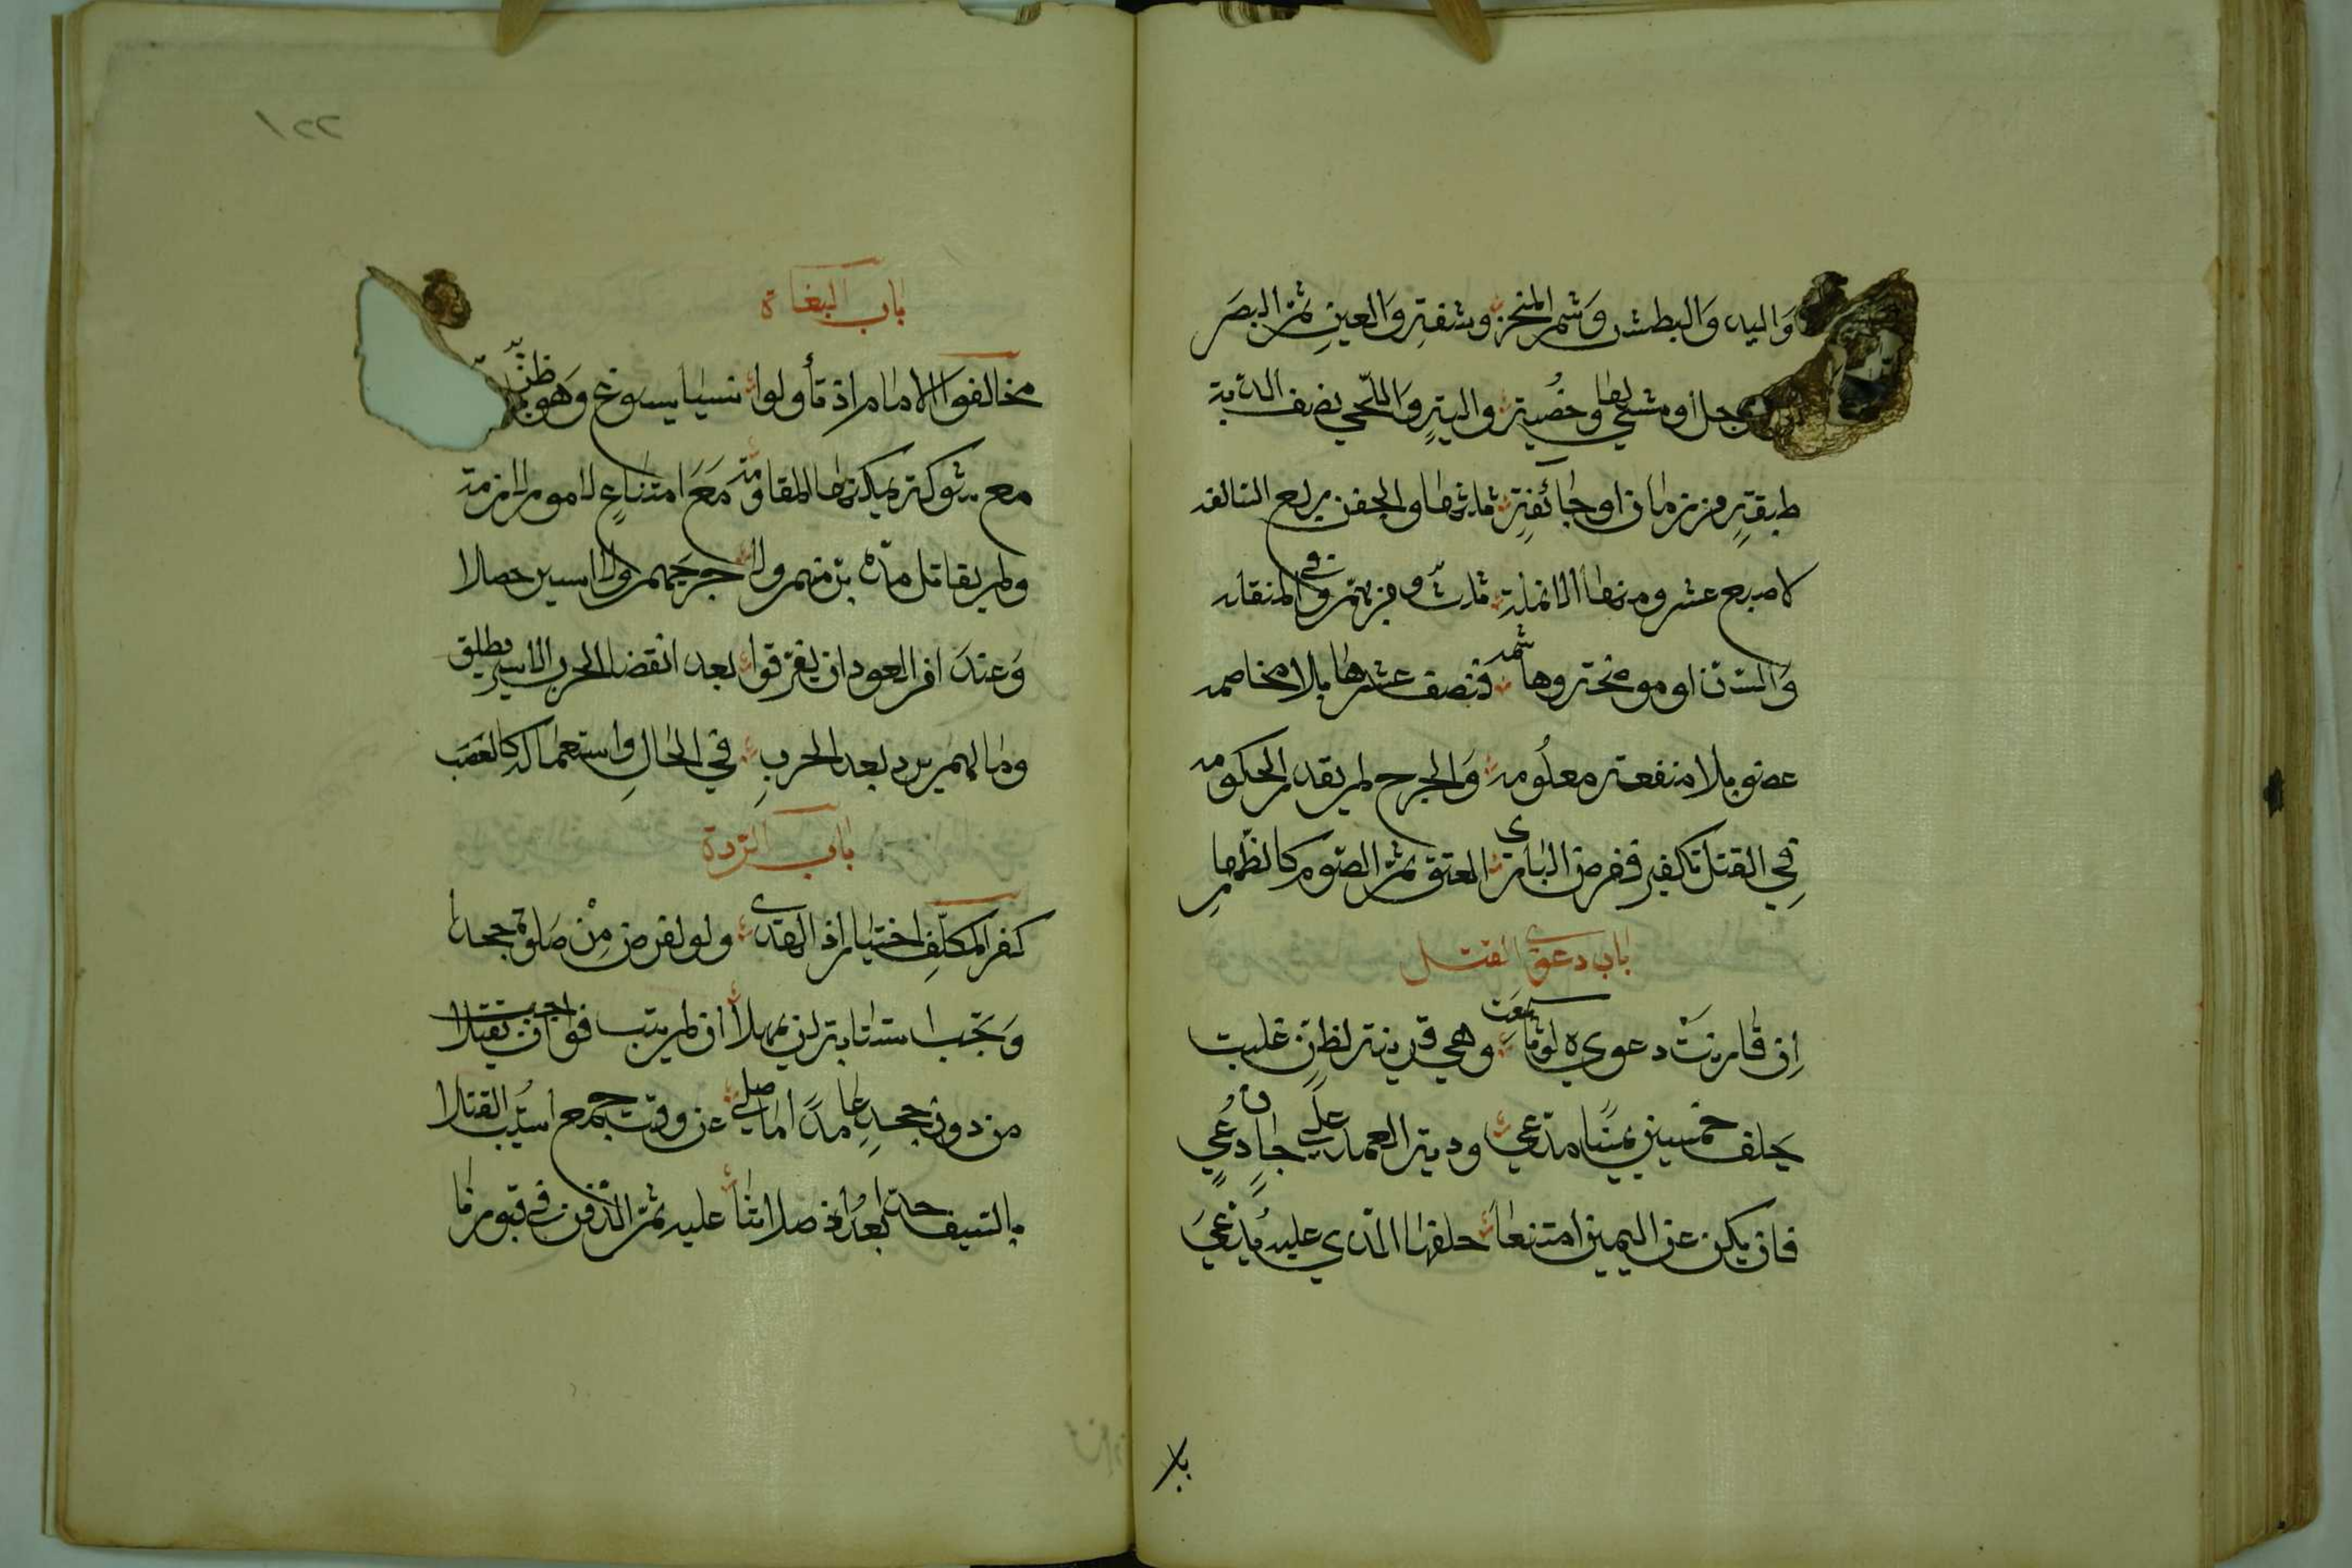 واليد والبطش وشم المنخر وشفة والعين ثم البصر
رجل أو مشي لها وخصية والية واللحي نصف الدية
طبقة من مارن او جائفة ثلثها والجفن ربع السالفه
لاصبع عشر ومنها الانملة ثلث وفي بهم وفي المنقله
والسن او موضحة وهاشمه فنصف عشرها بلا مخاصمه
عضو بلا منفعة معلومه والجرح لم يقدر الحكومه
في القتل تكفير ففرض الباري العتق ثم الصوم كالظهار
باب دعوى القتل
إن قارنت دعوى لوثا سمعت وهي قرينة لظن غلبت
يحلف خمسين يمينا مدعي ودية العمد على جان دعي
فان يكن عن اليمين امتنعا حلفها الذي عليه يدعى
بلا
١٢٢
باب البغاة
مخالفوا الامام اذ تأولوا شيا يسوغ وهو ظن
مع شوكة يمكنها المقاومه مع امتناع لامور لازمه
ولم يقاتل مدبر منهم ولا جريحهم ولا اسير حصلا
وعند امن العود اذ تفرقوا بعد انقضا الحرب الاسير يطلق
وما لهم يرد بعد الحرب في الحال واستعماله كالغصب
باب الردة
كفر المكلف اختيارا ذي الهدى ولو لفرض من صلوة جحدا
وتجب استتابة لن يمهلا ان لم يتب فواجب ان يقتلا
من دون جحد عامدا ما صلى عن وقت جمع استتب القتلا
بالسيف حدا بعد ذا صلاتنا عليه ثم الدفن في قبورنا